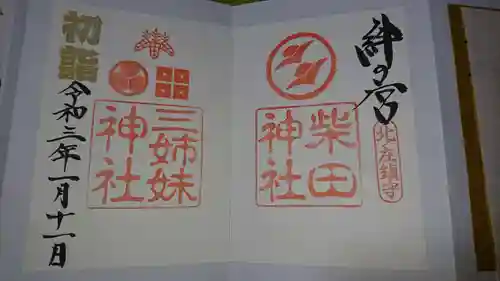 絆の宮
北庄鎮守
柴田
神社
初詣
三姉妹
神社
令和三年一月十一日